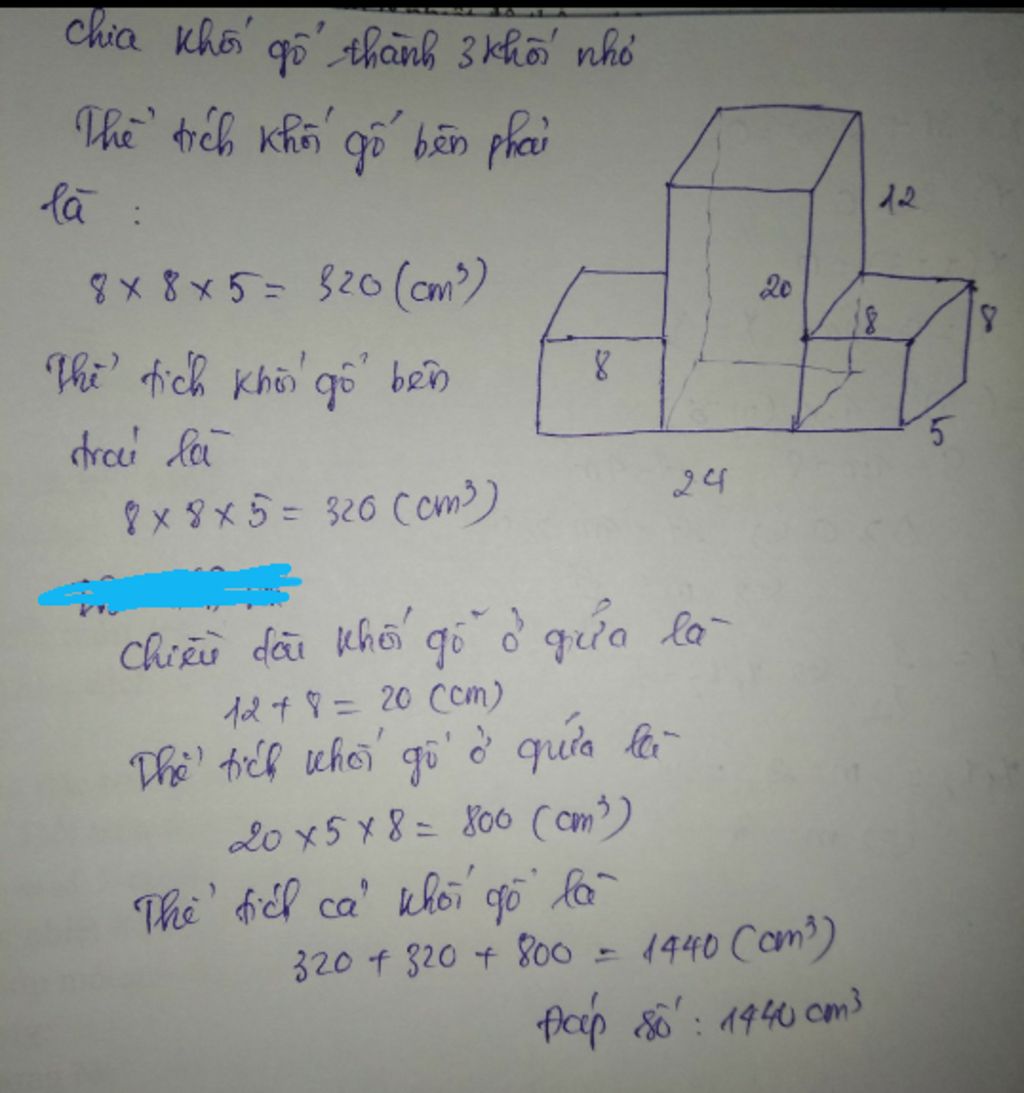 chia khối gỗ thành 3 khối nhỏ
Thể tích khối gỗ bên phải
là :
8 x 8 x 5 = 320 (cm³)
Thể tích khối gỗ bên
trái là
8 x 8 x 5 = 320 (cm³)
Chiều dài khối gỗ ở giữa là
12 + 8 = 20 (cm)
Thể tích khối gỗ ở giữa là
20 x 5 x 8 = 800 (cm³)
Thể tích cả khối gỗ là
320 + 320 + 800 = 1440 (cm³)
Đáp số : 1440 cm³
12
20
8
8
8
5
24